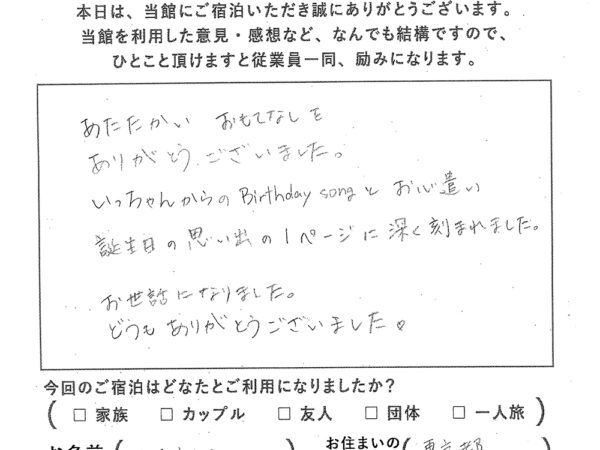 本日は、当館にご宿泊いただき誠にありがとうございます。
当館を利用した意見・感想など、なんでも結構ですので、
ひとこと頂けますと従業員一同、励みになります。
あたたかい おもてなしを
ありがとうございました。
いっちゃんからの Birthday song と お心遣い
誕生日の思い出の1ページに深く刻まれました。
お世話になりました。
どうもありがとうございました♡
今回のご宿泊はどなたとご利用になりましたか?
(□ 家族 □ カップル □ 友人 □ 団体 □ 一人旅)
お名前 ( お住まいの 東京都